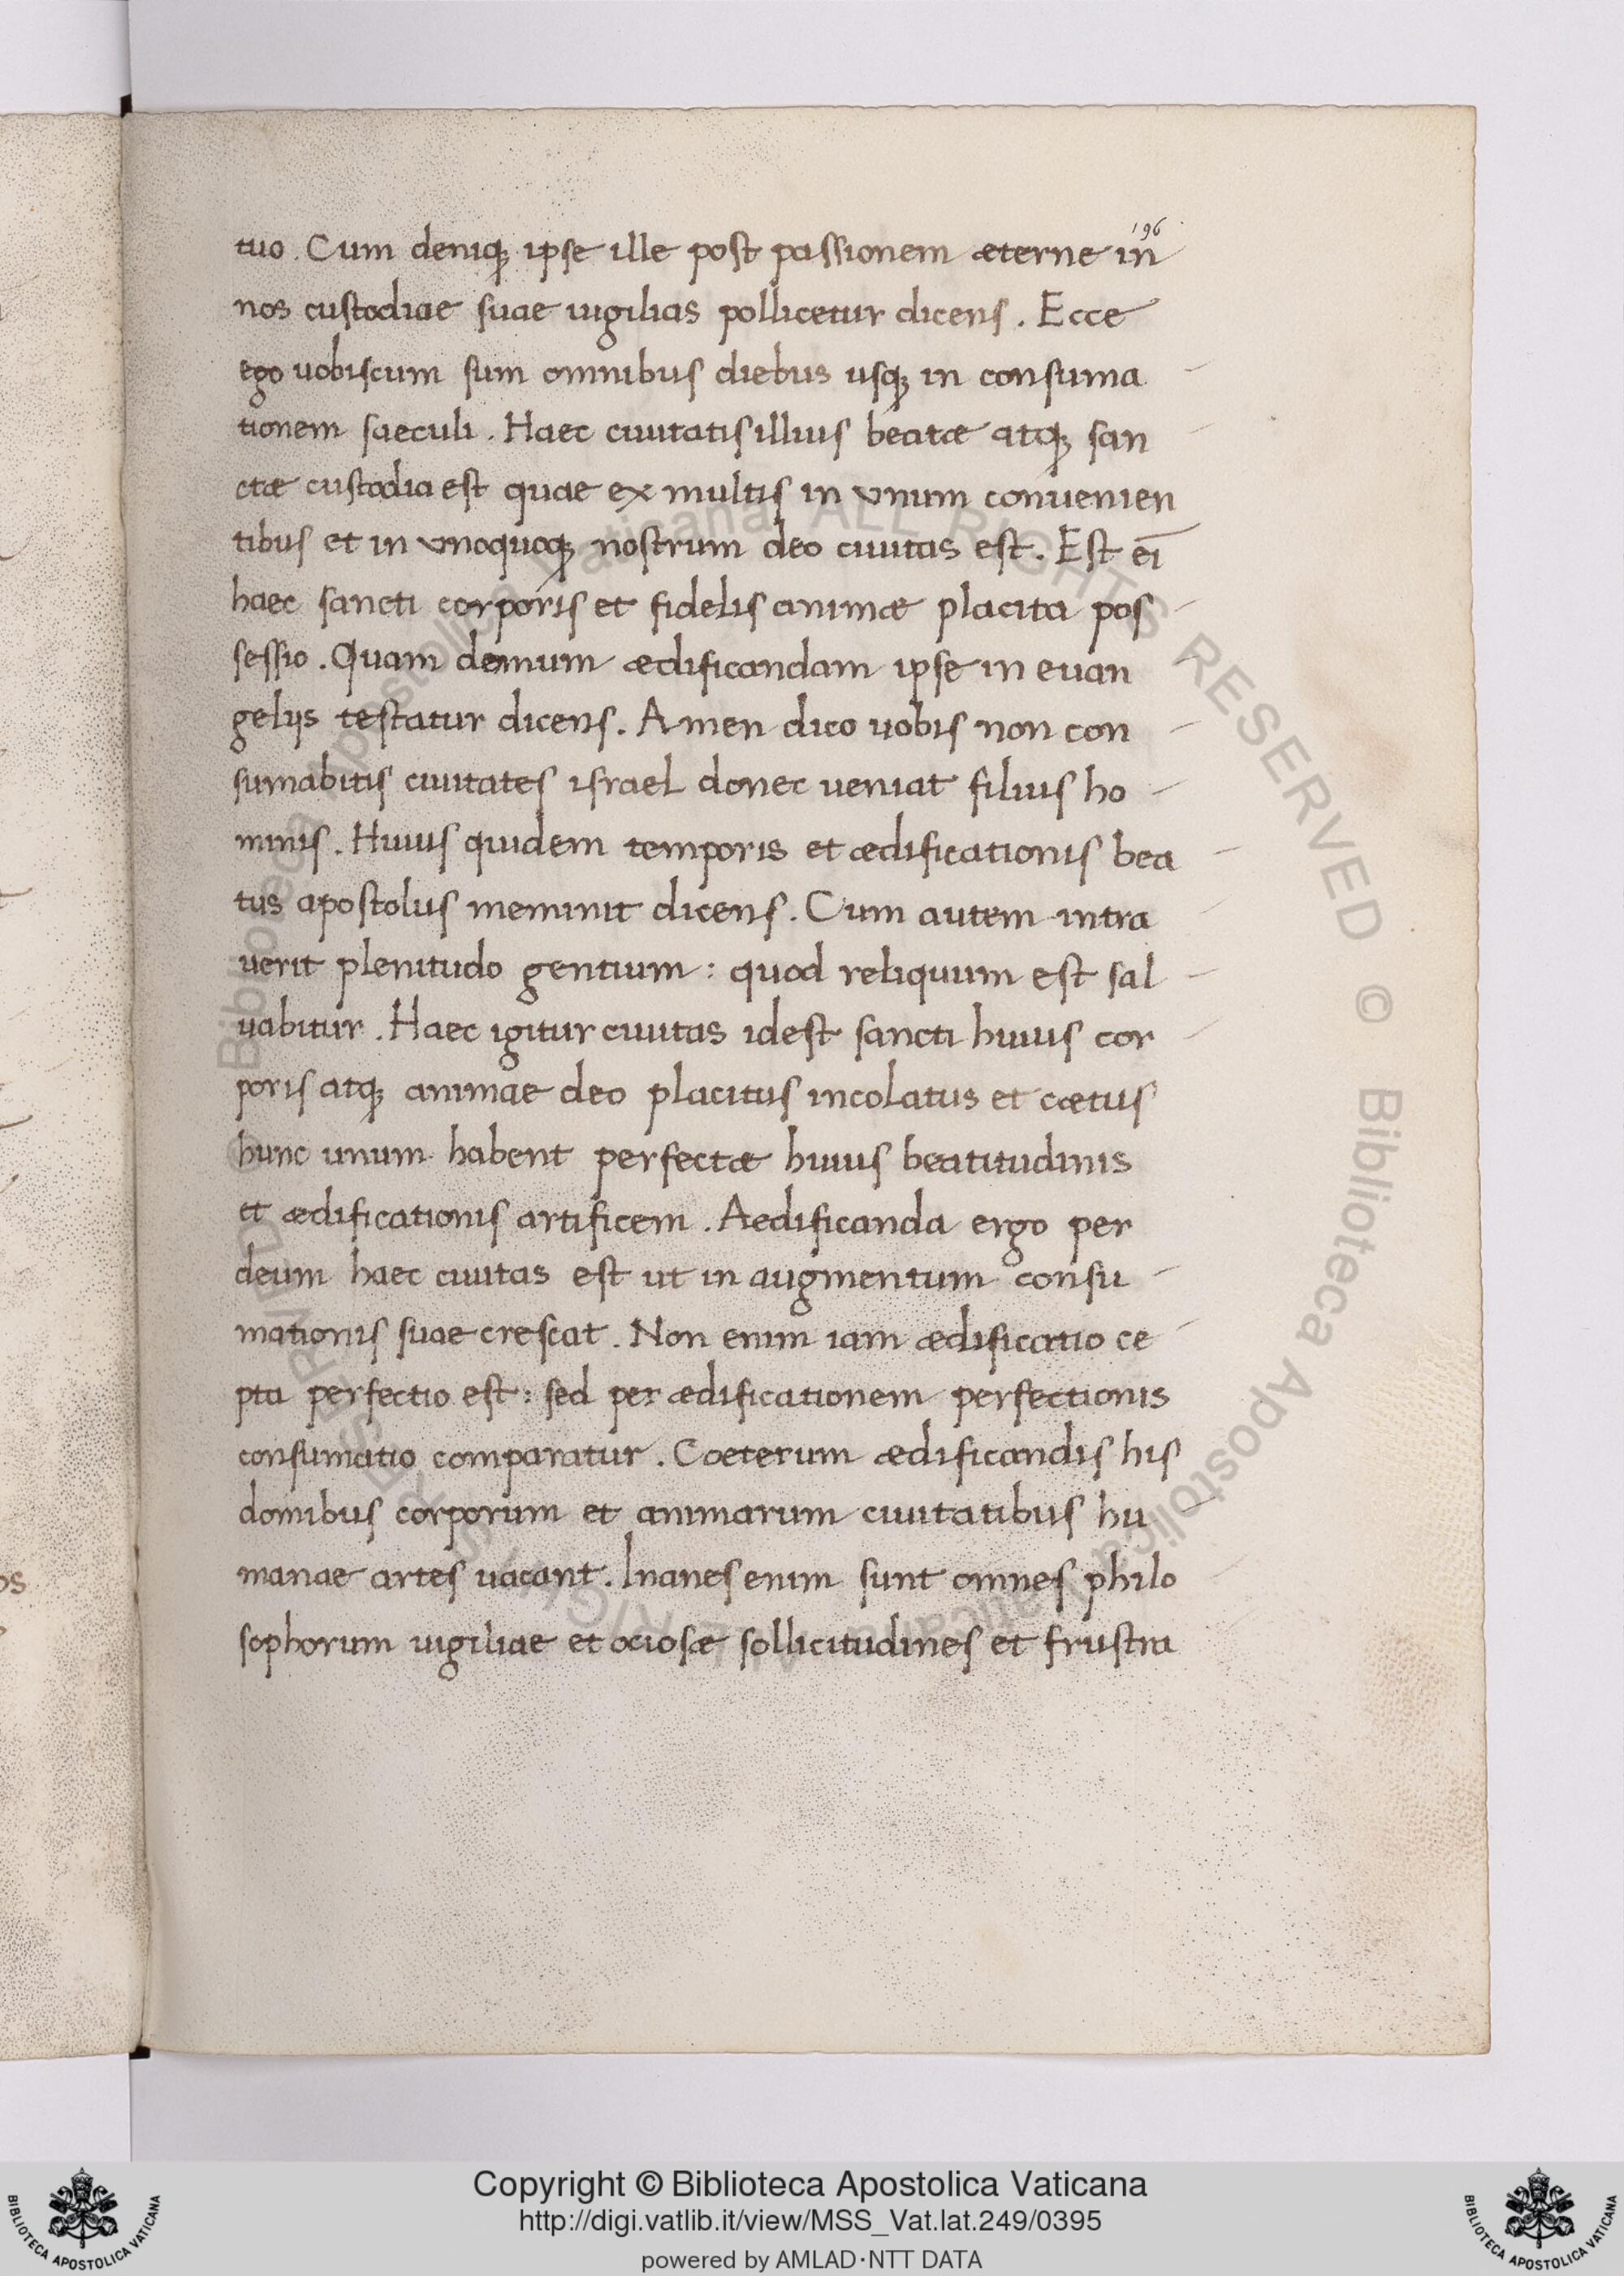 196
tuo. Cum deniq; ipse ille post passionem æterne in
nos custodiae suae uigilias pollicetur dicens. Ecce
ego uobiscum sum omnibus diebus usq; in consuma
tionem saeculi. Haec ciuitatis illius beatæ atq; san
ctæ custodia est quae ex multis in vnum conuenien
tibus et in vnoquoq; nostrum deo ciuitas est. Est ei
haec sancti corporis et fidelis animæ placita pos
sessio. Quam demum ædificandam ipse in euan
gelijs testatur dicens. Amen dico uobis non con
sumabitis ciuitates israel donec ueniat filius ho
minis. Huius quidem temporis et ædificationis bea
tus apostolus meminit dicens. Cum autem intra
uerit plenitudo gentium: quod reliquum est sal
uabitur. Haec igitur ciuitas idest sancti huius cor
poris atq; animae deo placitus incolatus et cœtus
hunc unum habent perfectæ huius beatitudinis
et ædificationis artificem. Aedificanda ergo per
deum haec ciuitas est ut in augmentum consu
mationis suae crescat. Non enim iam ædificatio ce
pta perfectio est: sed per ædificationem perfectionis
consumatio comparatur. Coeterum ædificandis his
domibus corporum et animarum ciuitatibus hu
manae artes uacant. Inanes enim sunt omnes philo
sophorum uigiliae et ociosæ sollicitudines et frustra
Biblioteca Apostolica Vaticana ALL RIGHTS RESERVED © Biblioteca Apostolica Vaticana ALL RIGHTS RESERVED
Copyright © Biblioteca Apostolica Vaticana
http://digi.vatlib.it/view/MSS_Vat.lat.249/0395
powered by AMLAD·NTT DATA
BIBLIOTECA APOSTOLICA VATICANA
BIBLIOTECA APOSTOLICA VATICANA